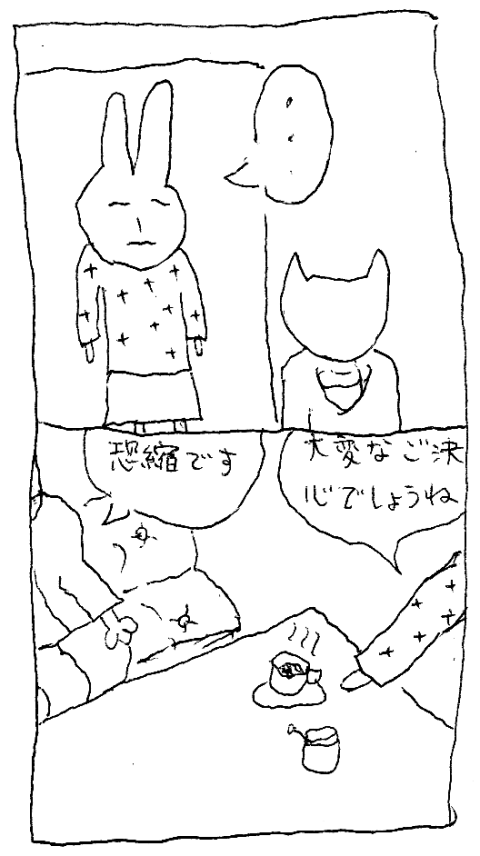 ・・・
大変なご決
心でしょうね
恐縮です